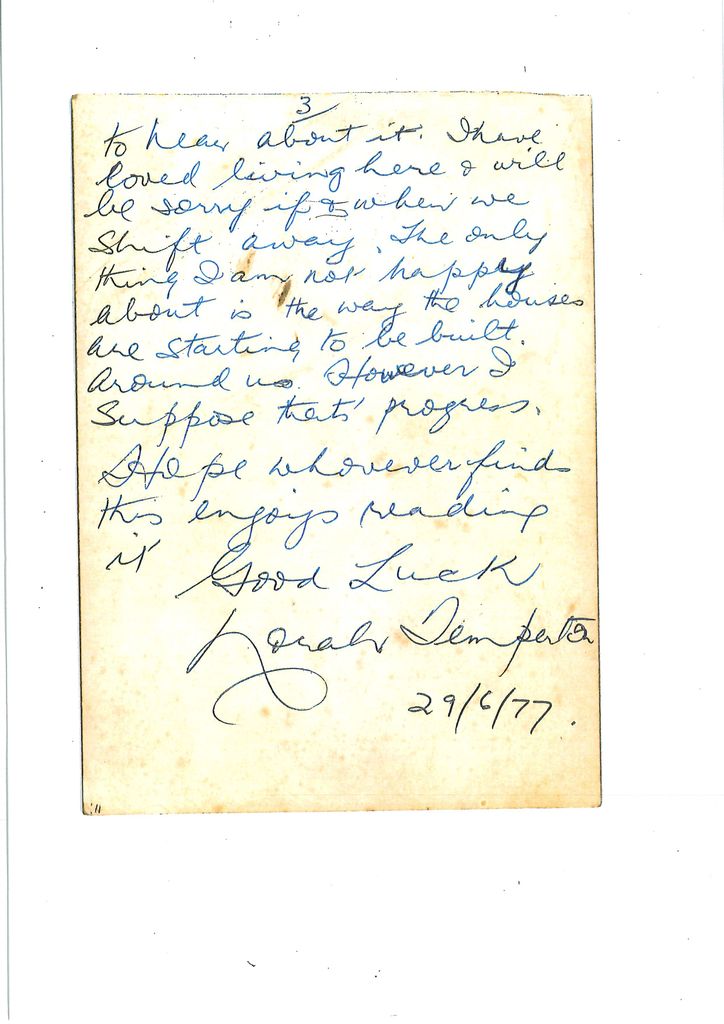 3
to hear about it. I have
loved living here & will
be sorry if & when we
shift away. The only
thing I am not happy
about is the way the houses
are starting to be built.
around us. However I
suppose thats' progress.
Hope whoever finds
this enjoys reading
it
Good Luck
Norah
29/6/77.